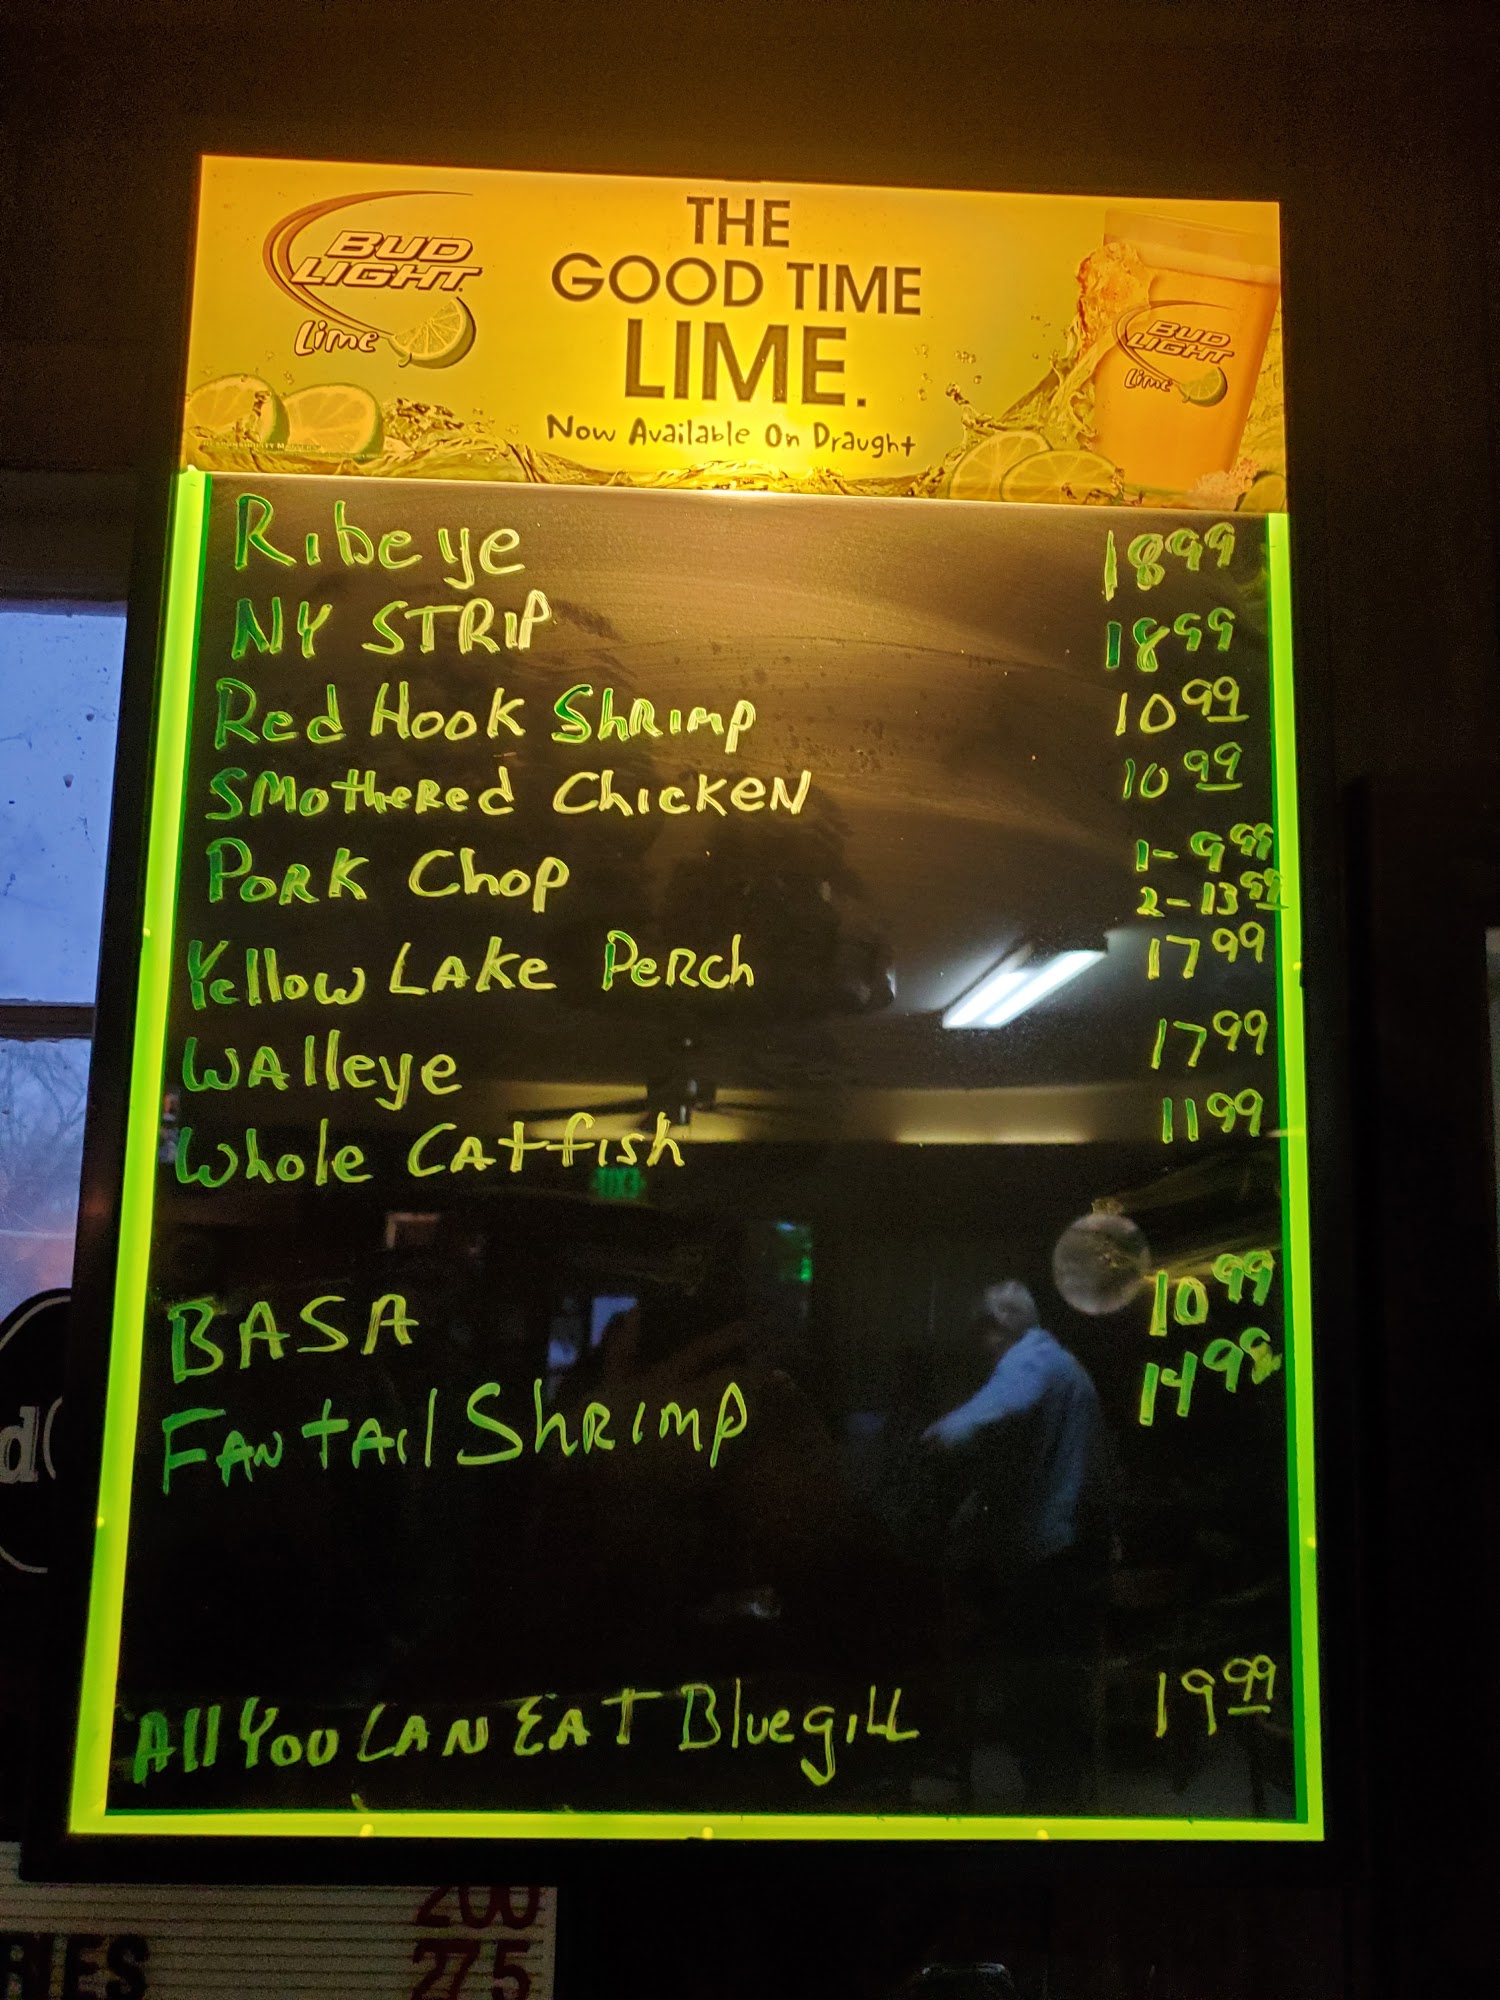 BUD LIGHT Lime
THE
GOOD TIME
LIME.
Now Available On Draught
BUD LIGHT Lime
Ribeye 18 99
NY STRIP 18 99
Red Hook Shrimp 10 99
Smothered Chicken 10 99
Pork Chop 1- 9 99
2- 13 99
Yellow Lake Perch 17 99
Walleye 17 99
Whole Catfish 11 99
BASA 10 99
Fantail Shrimp 14 99
All You Can Eat Bluegill 19 99
200
RIES 275